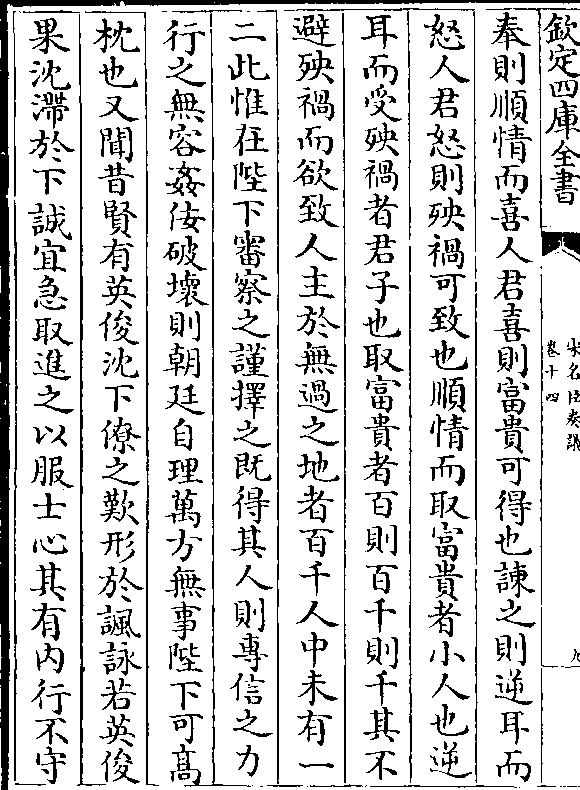 欽定四庫全書
宋名臣奏議
卷十四
九
奉則順情而喜人君喜則富貴可得也諫之則逆耳而
怒人君怒則殃禍可致也順情而取富貴者小人也逆
耳而受殃禍者君子也取富貴者百則百千則千其不
避殃禍而欲致人主於無過之地者百千人中未有一
二此惟在陛下審察之謹擇之既得其人則專信之力
行之無容姦佞破壞則朝廷自理萬方無事陛下可髙
枕也又聞昔賢有英俊沈下僚之歎形於諷詠若英俊
果沈滯於下誠宜急取進之以服士心其有内行不守